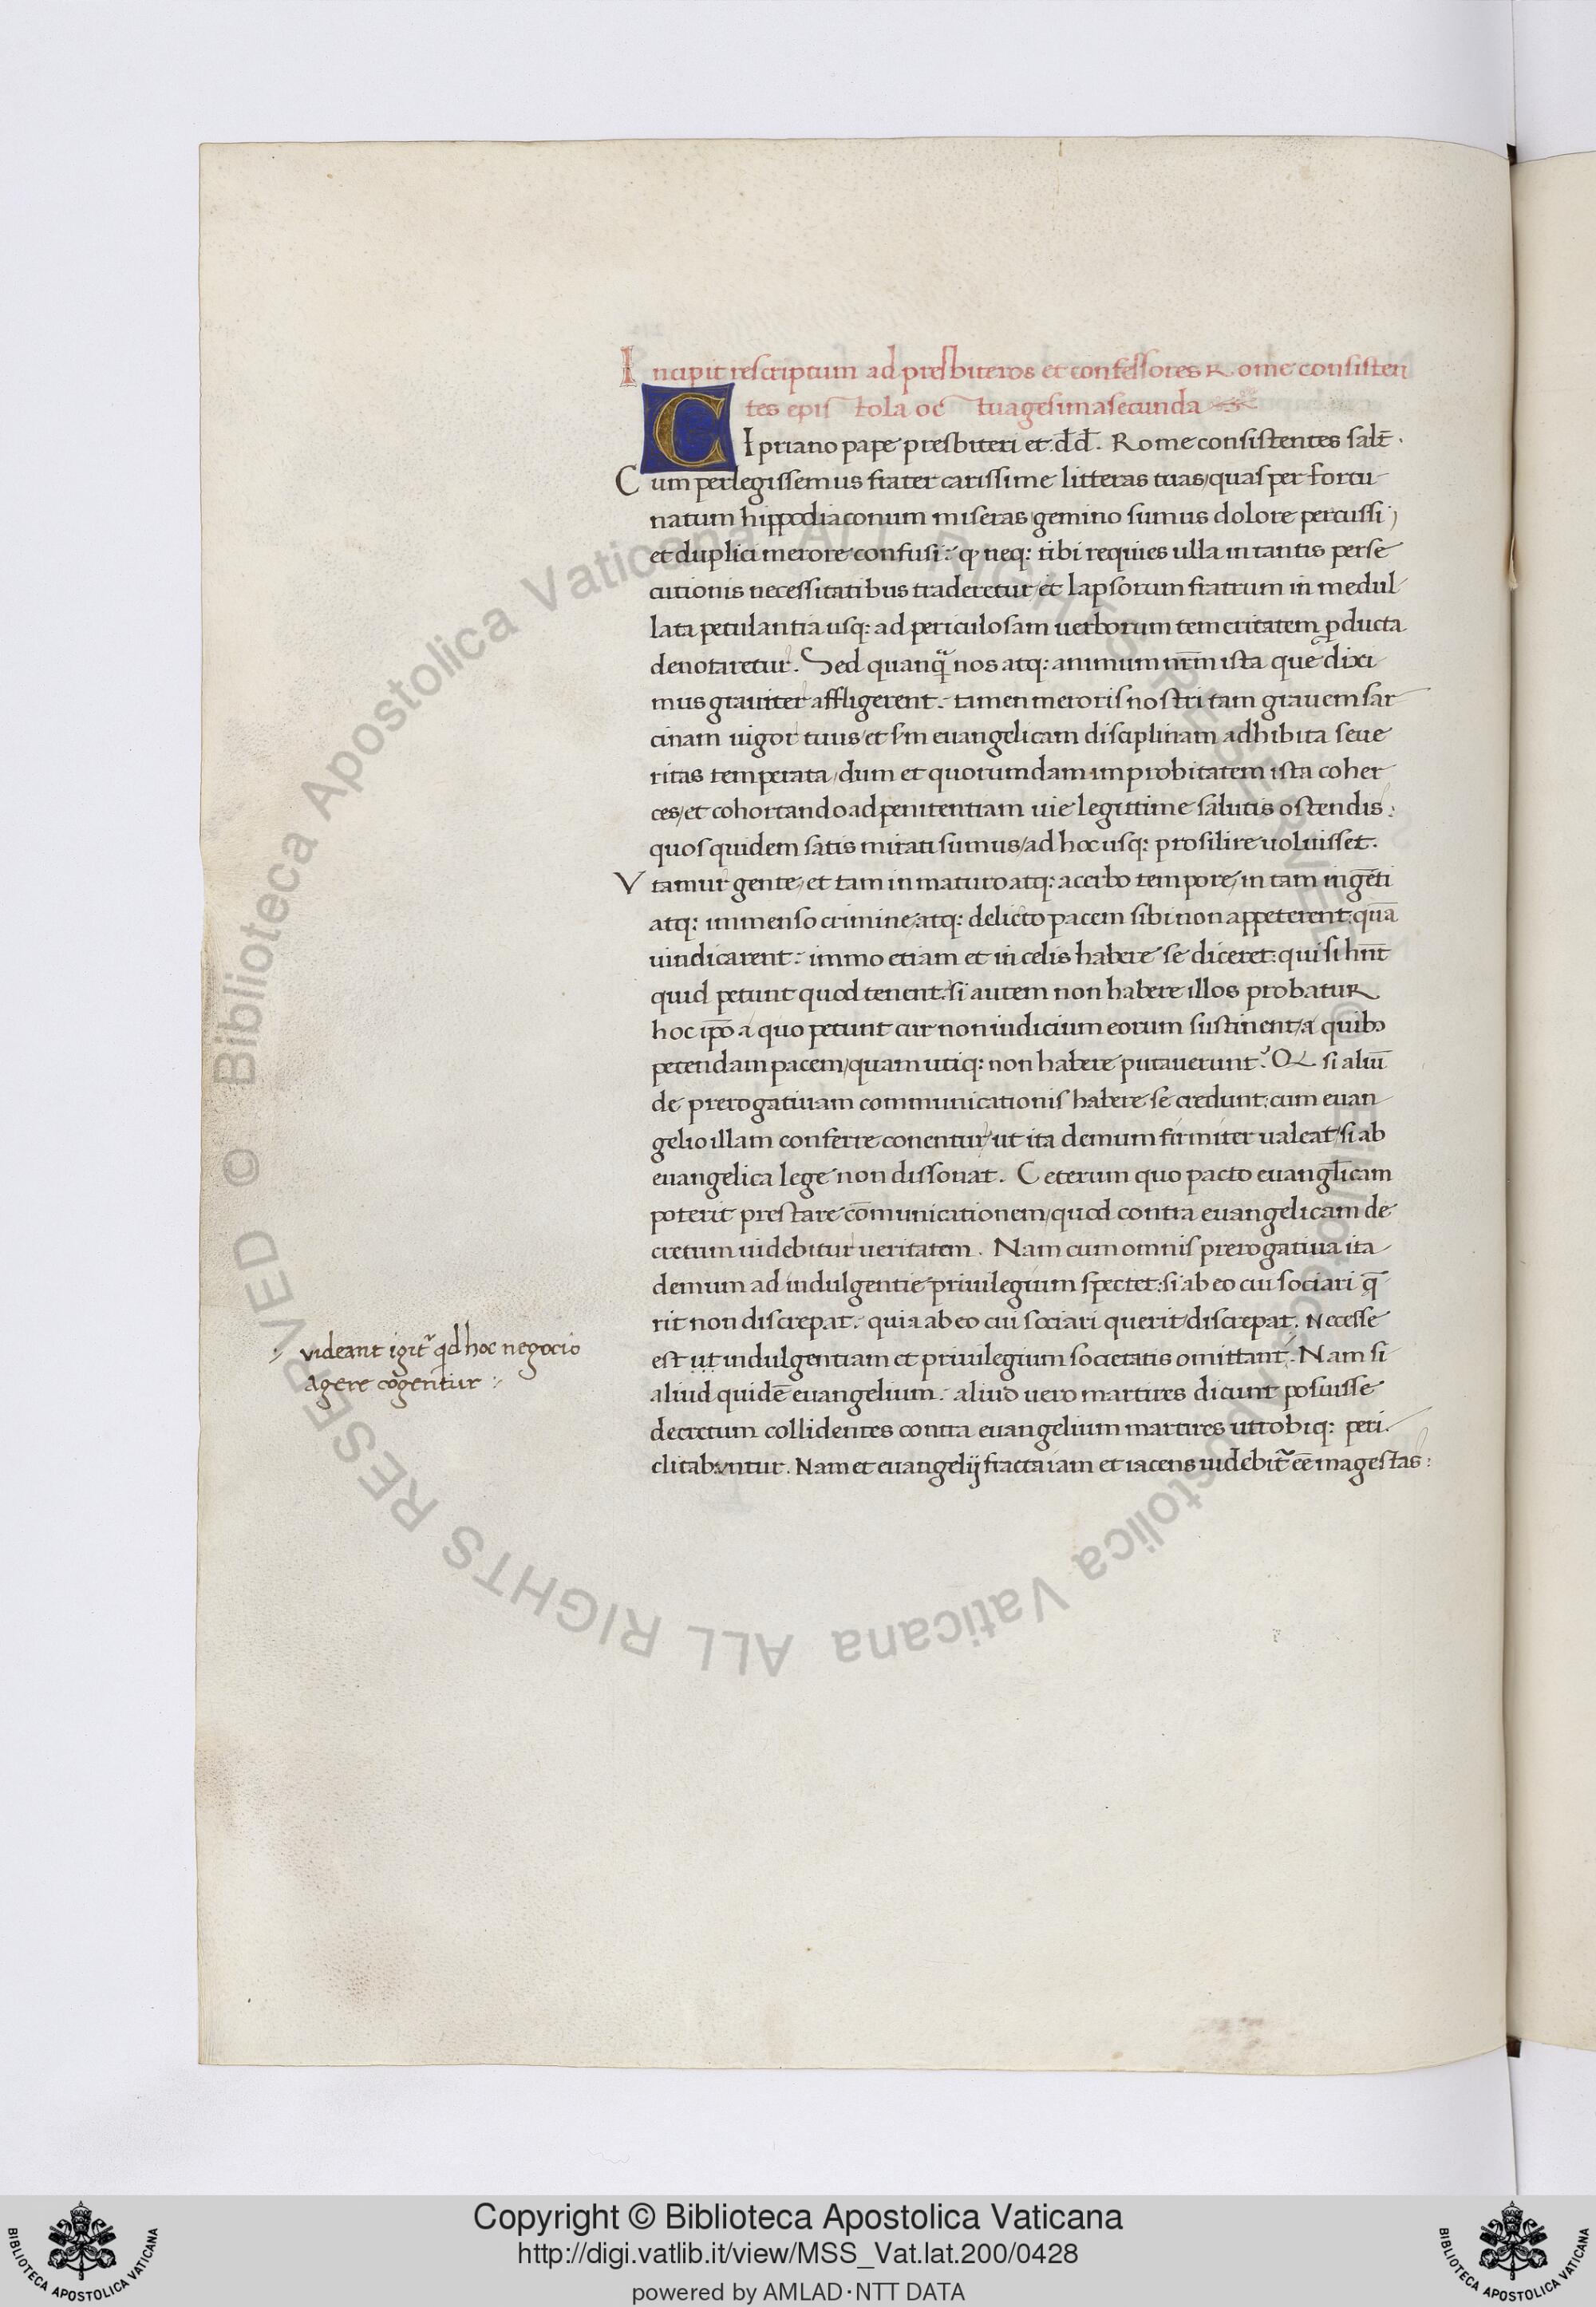 Incipit rescriptum ad presbiteros et confessores Rome consisten
tes epistola octuagesimasecunda
CIpriano pape presbiteri et .dd̄. Rome consistentes salt̄.
Cum perlegissemus frater carissime litteras tuas/quas per fortu-
natum hippodiaconum miseras/gemino sumus dolore percussi/
et duplici merore confusi: ꝙ neq: tibi requies ulla in tantis perse
cutionis necessitatibus traderetur/et lapsorum fratrum in medul
lata petulantia usq: ad periculosam uerborum temeritatem ꝑducta
denotaretur. Sed quanq̄ nos atq: animum nr̄m ista que dixi
mus grauiter affligerent: tamen meroris nostri tam grauem sar
cinam uigor tuus/et sm̄ euangelicam disciplinam adhibita seue
ritas temperata/dum et quorumdam improbitatem ista coher
ces/et cohortando ad penitentiam uie legittime salutis ostendis:
quos quidem satis mirati sumus/ad hoc usq: prosilire uoluisset.
Vtamur gente/et tam inmaturo atq: acerbo tempore/in tam ingēti
atq: immenso crimine/atq: delicto pacem sibi non appeterent:quā
uindicarent: immo etiam et in celis habere se diceret:qui si hn̄t
quid petunt quod tenent:si autem non habere illos probatuR
hoc ip̄o a quo petunt cur non iudicium eorum sustinent/a quibꝫ
petendam pacem/quam utiq: non habere putauerunt? Q si aliū
de prerogatiuam communicationis habere se credunt:cum euan
gelio illam conferre conentur/ut ita demum firmiter ualeat/si ab
euangelica lege non dissonat. Ceterum quo pacto euangl̄icam
poterit prestare cōmunicationem/quod contra euangelicam de
cretum uidebitur ueritatem. Nam cum omnis prerogatiua ita
demum ad indulgentie priuilegium spectet:si ab eo cui sociari q̄
rit non discrepat: quia ab eo cui sociari querit/discrepat. Necesse
est ut indulgentiam et priuilegium societatis omittant: Nam si
aliud quidē euangelium: aliud uero martires dicunt posuisse
decretum collidentes contra euangelium martires utrobiq: peri.
clitabuntur. Nam et euangelij fracta iam et iacens uidebit̄ eē magestas:
videant igit̄ qd hoc negocio
Agere cogentur :
Copyright © Biblioteca Apostolica Vaticana
http://digi.vatlib.it/view/MSS_Vat.lat.200/0428
powered by AMLAD·NTT DATA
BIBLIOTECA APOSTOLICA VATICANA
BIBLIOTECA APOSTOLICA VATICANA
© Biblioteca Apostolica Vaticana ALL RIGHTS RESERVED
© Biblioteca Apostolica Vaticana ALL RIGHTS RESERVED